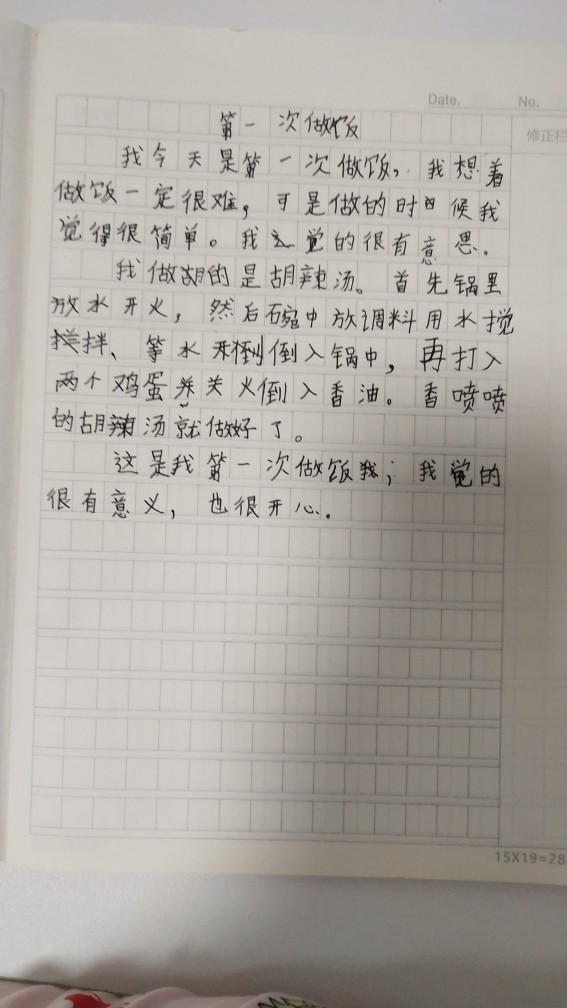 Date. No.
第一次做饭
修正栏
我今天是第一次做饭，我想着
做饭一定很难，可是做的时候我
觉得很简单。我觉的很有意思。
我做的是胡辣汤。首先锅里
放水开火，然后碗中放调料用水搅
拌、等水开倒入锅中，再打入
两个鸡蛋关火倒入香油。香喷喷
的胡辣汤就做好了。
这是我第一次做饭；我觉的
很有意义，也很开心.
15X19=28